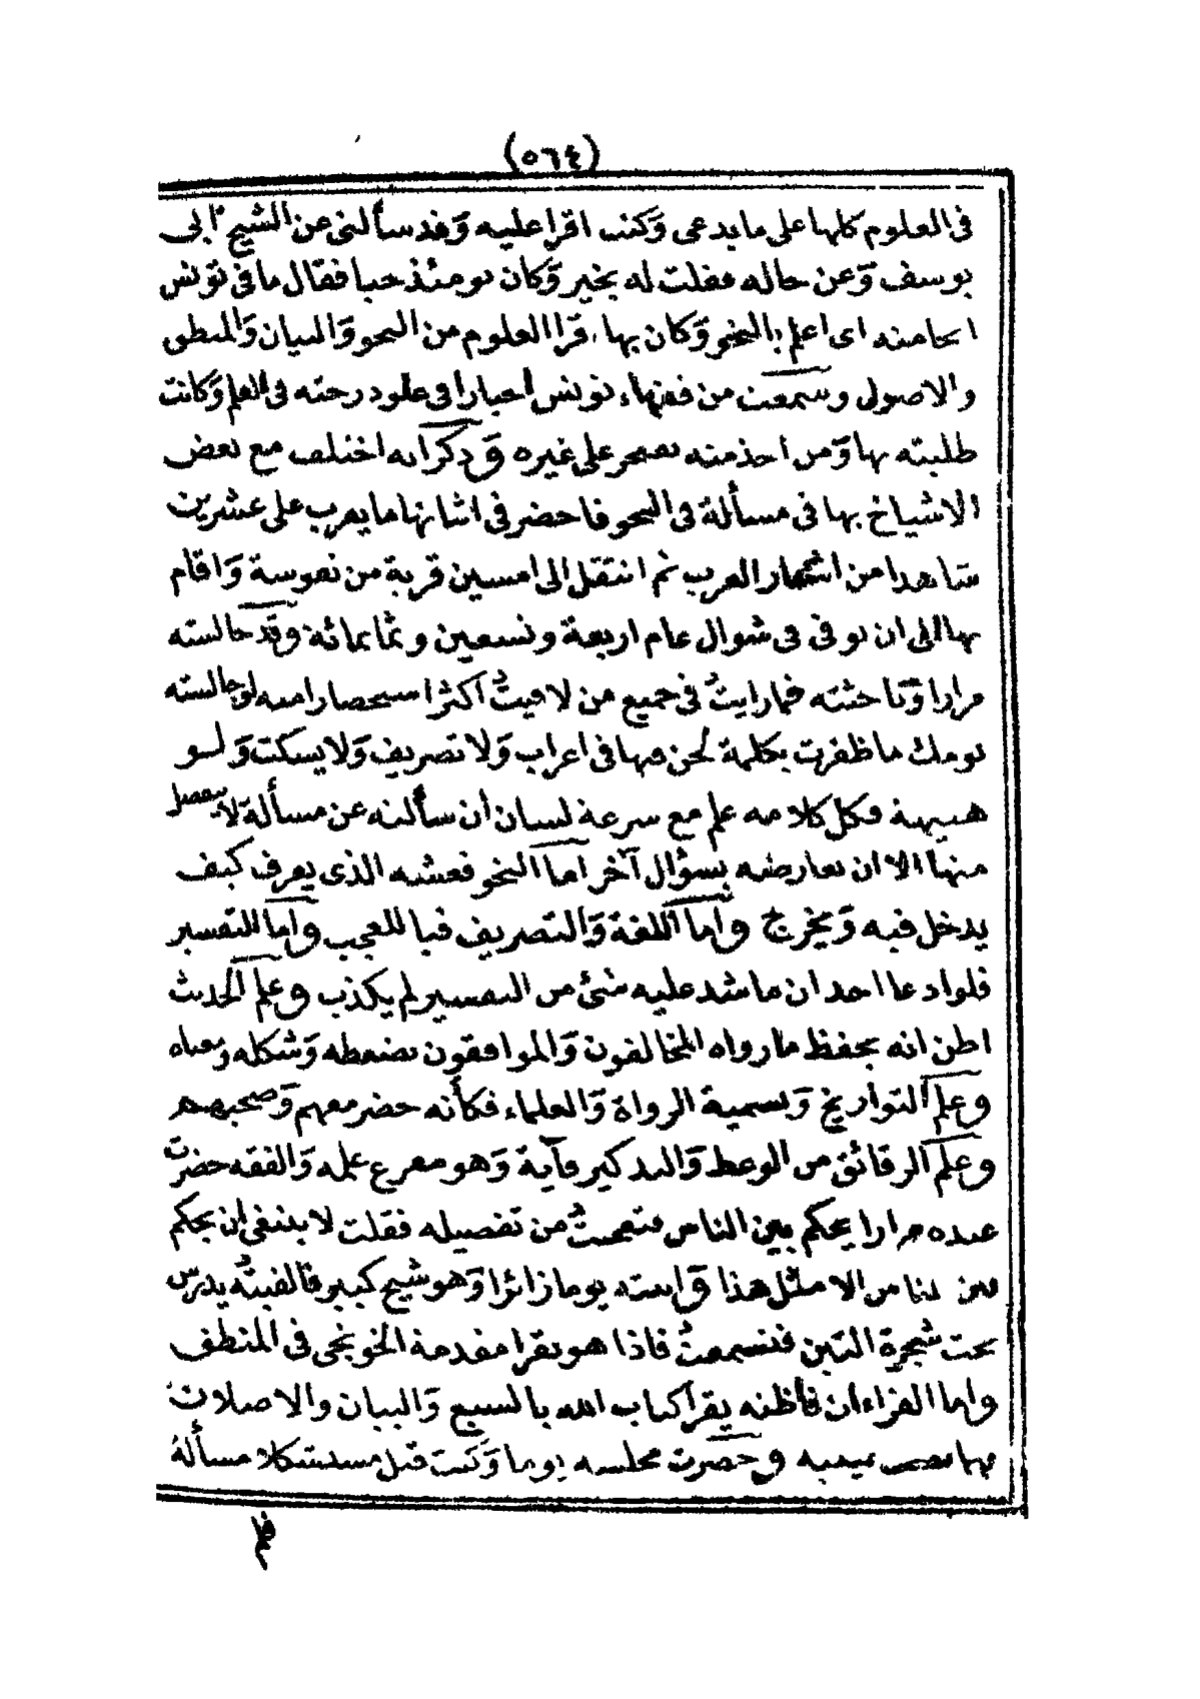 (٥٦٤)
فى العلوم كلها على ما يدعى وكنت اقرا عليه وقد سألنى عن الشيخ ابى
يوسف وعن حاله فقلت له بخير وكان يومئذ حيا فقال ما فى تونس
انحا منه اى اعلم بالنحو وكان بها قرا العلوم من النحو والبيان والمنطق
والاصول وسمعت من فقهاء تونس اخبارا فى علو درجته فى العلم وكانت
طلبته بها ومن اخذ منه يفتخر على غيره وذكر انه اختلف مع بعض
الاشياخ بها فى مسألة فى النحو فاحضر فى اثباتها ما يقرب على عشرين
شاهدا من اشعار العرب ثم انتقل الى امسين قرية من نفوسة واقام
بها الى ان توفى فى شوال عام اربعة وتسعين وثمانمائة وقد جالسته
مرارا وباحثته فما رايت فى جميع من لاقيت اكثر استحضارا منه لو جالسته
يومك ما ظفرت بكلمة لحن فيها فى اعراب ولا تصريف ولا يسكت ولو
هنيهة فكل كلامه علم مع سرعة لسان ان سألته عن مسألة لا ينفصل
منها الا ان تعارضه بسؤال آخر اما النحو فعشه الذى يعرف كيف
يدخل فيه ويخرج واما اللغة والتصريف فيا للعجب واما التفسير
فلو ادعا احد ان ما شد عليه شئ من التفسير لم يكذب وعلم الحديث
اظن انه يحفظ ما رواه المخالفون والموافقون بضبطه وشكله ومعناه
وعلم التواريخ وتسمية الرواة والعلماء فكأنه حضر معهم وصحبهم
وعلم الرقائق من الوعظ والتذكير فآية وهو مفرع علمه والفقه حضرت
عنده مرارا يحكم بين الناس فتعجبت من تفصيله فقلت لا ينبغى ان يحكم
بين الناس الا مثل هذا واتيته يوما زائرا وهو شيخ كبير فالفيته يدرس
تحت شجرة التين فتسمعت فاذا هو يقرا مقدمة الخونجى فى المنطق
واما القراءان فأظنه يقرأ كتاب الله بالسبع والبيان والاصلات
بها وحضرت مجلسه يوما وكنت قبل مستشكلا مسألة
فلم